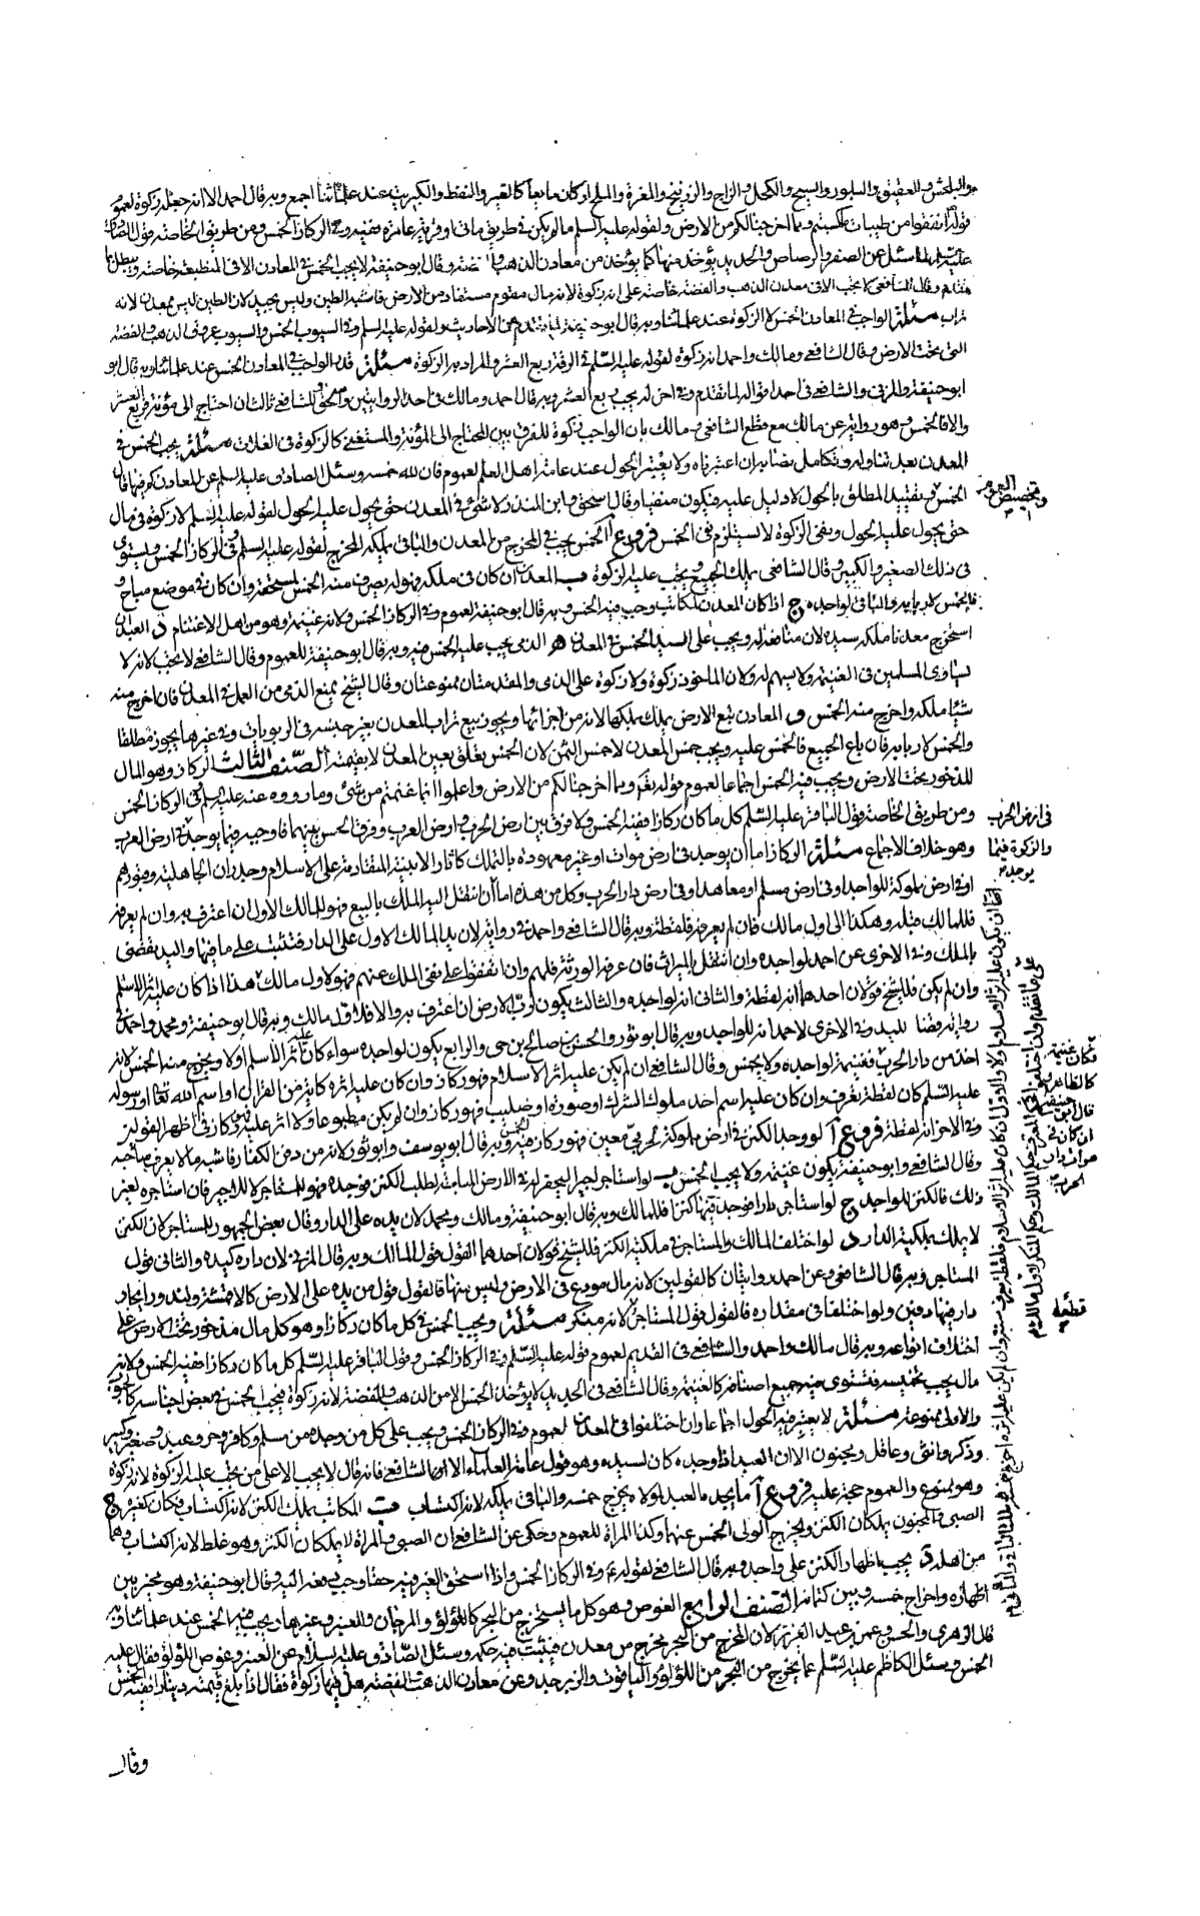 والبلخش والعقيق والبلور والسبج والكحل والزاج والزرنيخ والمغرة والملح او كان مايعا كالقير والنفط والكبريت عند علمائنا اجمع وبه قال احمد الا انه جعله زكوة لعموم
قوله انفقوا من طيبات ما كسبتم ومما اخرجنا لكم من الارض ولقوله عليه السلم ما لم يكن في طريق ماتى او قرية عامرة ففيه وفي الركاز الخمس ومن طريق الخاصة قول الصادق
عليه السلم لما سئل عن الصفر والرصاص والحديد يؤخذ منها كما يؤخذ من معادن الذهب والفضة وقال ابو حنيفة لا يجب الخمس في المعادن الا في المنطبعة خاصة ويبطل بما
تقدم وقال الشافعي لا يجب الا في معدن الذهب والفضة خاصة على انه زكوة لانه مال مقوم مستفاد من الارض فاشبه الطين وليس بجيد لان الطين ليس بمعدن لانه
تراب مسئلة الواجب في المعادن الخمس لا الزكوة عند علمائنا وبه قال ابو حنيفة لما تقدم من الاحاديث ولقوله عليه السلم وفي السيوب الخمس والسيوب عروق الذهب والفضة
التي تحت الارض وقال الشافعي ومالك واحمد انه زكوة لقوله عليه السلم في الرقة ربع العشر والمراد به الزكوة مسئلة قدر الواجب في المعادن الخمس عند علمائنا وبه قال ابو
ابو حنيفة والمزني والشافعي في احد اقواله لما تقدم وفي اخر له يجب ربع العشر وبه قال احمد ومالك في احد الروايتين وللشافعي ثالث ان احتاج الى مؤنة فربع العشر
والا فالخمس وهو رواية عن مالك مع قطع الشافعي ومالك بان الواجب زكوة للفرق بين المحتاج الى المؤنة والمستغني كالزكوة في الغلات مسئلة يجب الخمس في
المعدن بعد تناوله وتكامل نصابه ان اعتبرناه ولا يعتبر الحول عند عامة اهل العلم لعموم فان لله خمسه وسئل الصادق عليه السلم عن المعادن كم فيها قال
الخمس وتقييد المطلق بالحول لا دليل عليه فيكون منفيا وقال اسحق وابن المنذر لا شئ في المعدن حتى يحول عليه الحول لقوله عليه السلم لا زكوة في مال
حتى يحول عليه الحول ونفي الزكوة لا يستلزم نفي الخمس فروع آ الخمس يجب في المخرج من المعدن والباقي يملكه المخرج لقوله عليه السلم وفي الركاز الخمس ويستوي
في ذلك الصغير والكبير وقال الشافعي يملك الجميع ويجب عليه الزكوة ب المعدن ان كان في ملكه فهو له يصرف منه الخمس لمستحقه وان كان في موضع مباح
فالخمس لاربابه والباقي لواجده ج اذا كان المعدن لمكاتب وجب فيه الخمس وبه قال ابو حنيفة لعموم وفي الركاز الخمس ولانه غنيمة وهو من اهل الاغتنام د العبد ان
استخرج معدنا ملكه سيده لان منافعه له ويجب على السيد الخمس في المعدن هـ الذمي يجب عليه الخمس فيه وبه قال ابو حنيفة للعموم وقال الشافعي لا يجب لانه لا
يساوي المسلمين في الغنيمة ولا يسهم له ولان الماخوذ زكوة ولا زكوة على الذمي والمقدمتان ممنوعتان وقال الشيخ يمنع الذمي من العمل في المعدن فان اخرج منه
شيئا ملكه واخرج منه الخمس و المعادن تبع الارض يملك بملكها لانه من اجزائها ويجوز بيع تراب المعدن بغير جنسه في الربويات وفي غيرها يجوز مطلقا
والخمس لاربابه فان باع الجميع فالخمس عليه ويجب خمس المعدن لا خمس الثمن لان الخمس يغلق بعين المعدن لا بقيمته الصنف الثالث الركاز وهو المال
المذخور تحت الارض ويجب فيه الخمس اجماعا لعموم قوله تعم ومما اخرجنا لكم من الارض واعلموا انما غنمتم من شئ وما رووه عنه عليه السلم وفي الركاز الخمس
ومن طريق الخاصة قول الباقر عليه السلم كل ما كان ركازا ففيه الخمس ولا فرق بين ارض الحرب وارض العرب وفرق الحسن بينهما فاوجبه فيما يوجد في ارض العرب
وهو خلاف الاجماع مسئلة الركاز اما ان يوجد في ارض موات او غير معهودة بالتملك كاثار الابنية المتقادمة على الاسلام وجدران الجاهلية وقبورهم
او في ارض مملوكة للواجد او في ارض مسلم او معاهد او في ارض دار الحرب وكل من هذه اما ان انتقل اليه الملك بالبيع فهو للمالك الاول ان اعترف به وان لم يعرفه
فللمالك قبله وهكذا الى اول مالك فان لم يعرفه فلقطة وبه قال الشافعي واحمد في رواية لان يد المالك الاول على الدار فتثبت على ما فيها واليد يقضى
بالملك وفي الاخرى عن احمد لواجده وان انتقل بالميراث فان عرفه الورثة فلهم وان اتفقوا على نفي الملك عنهم فهو لاول مالك هذا اذا كان عليه اثر الاسلام
وان لم يكن فللشيخ قولان احدهما انه لقطة والثاني انه لواجده والثالث يكون لرب الارض ان اعترف به والا فلاول مالك وبه قال ابو حنيفة ومحمد واحمد في
رواية قضاء لليد وفي الاخرى لاحمد انه للواجد وبه قال ابو ثور والحسن بن صالح بن حي والرابع يكون لواجده سواء كان عليه اثر الاسلام اولا ويخرج منه الخمس لانه
اخذ من دار الحرب فغنيمة لواجده ولا يخمس وقال الشافعي ان لم يكن عليه اثر الاسلام فهو ركاز وان كان عليه اثره كاية من القران او اسم الله تعا او رسوله
عليه السلم كان لقطة يعرف وان كان عليه اسم احد ملوك الشرك او صورة او صليب فهو ركاز وان لم يكن مطبوعا ولا اثر عليه فركاز في اظهر القولين
وفي الاخر انه لقطة فروع آ لو وجد الكنز في ارض مملوكة لحربي معين فهو ركاز وفيه الخمس وبه قال ابو يوسف وابو ثور لانه من دفن الكفار فاشبه ما لا يعرف صاحبه
وقال الشافعي وابو حنيفة يكون غنيمة ولا يجب الخمس ب لو استاجر اجيرا ليحفر له في الارض المباحة لطلب الكنز فوجده فهو للمستاجر لا للاجير فان استاجره لغير
ذلك فالكنز للواجد ج لو استاجر دارا فوجد فيها كنزا فللمالك وبه قال ابو حنيفة ومالك ومحمد لان يده على الدار وقال بعض الجمهور للمستاجر لان الكنز
لا يملك بملكية الدار د لو اختلف المالك والمستاجر في ملكية الكنز فللشيخ قولان احدهما القول قول المالك وبه قال المزني لان داره كيده والثاني قول
المستاجر وبه قال الشافعي وعن احمد روايتان كالقولين لانه مال مودع في الارض وليس منها فالقول قول من يده على الارض كالاقمشة ولبعد ان ايجاد
دار فيها دفين ولو اختلفا في مقداره فالقول قول المستاجر لانه منكر مسئلة ويجب الخمس في كل ما كان ركازا وهو كل مال مذخور تحت الارض على
اختلاف انواعه وبه قال مالك واحمد والشافعي في القديم لعموم قوله عليه السلم وفي الركاز الخمس وقول الباقر عليه السلم كل ما كان ركازا ففيه الخمس ولانه
مال يجب تخميسه فتستوي فيه جميع اصنافه كالغنيمة وقال الشافعي في الجديد لا يؤخذ الخمس الا من الذهب والفضة لانه زكوة فيجب الخمس في بعض اجناسه كالحبوب
والاولى ممنوعة مسئلة لا يعتبر فيه الحول اجماعا وان اختلفوا في المعدن لعموم وفي الركاز الخمس ويجب على كل من وجده من مسلم وكافر وحر وعبد وصغير وكبير
وذكر وانثى وعاقل ومجنون الا ان العبد اذا وجده كان لسيده وهو قول عامة العلماء الا الشافعي فانه قال لا يجب الا على من يجب عليه الزكوة لانه زكوة
وهو ممنوع والعموم حجة عليه فروع آ ما يجده العبد لمولاه يخرج خمسه والباقي يملكه لانه اكتساب ب المكاتب يملك الكنز لانه اكتساب فكان كغيره ج
الصبي والمجنون يملكان الكنز ويخرج الولي الخمس عنهما وكذا المراة للعموم وحكي عن الشافعي ان الصبي والمراة لا يملكان الكنز وهو غلط لانه اكتساب وهما
من اهله د يجب اظهار الكنز على واجده وبه قال الشافعي لقوله ع وفي الركاز الخمس واذا استحق الغير فيه حقا وجب دفعه اليه وقال ابو حنيفة هو مخير بين
اظهاره واخراج خمسه وبين كتمانه الصنف الرابع الغوص وهو كل ما يستخرج من البحر كاللؤلؤ والمرجان والعنبر وغيرها ويجب فيه الخمس عند علمائنا وبه
قال الزهري والحسن وعمر بن عبد العزيز لان المخرج من البحر مخرج من معدن فيثبت فيه حكمه وسئل الصادق عليه السلام عن العنبر وغوص اللؤلؤ فقال عليه
الخمس وسئل الكاظم عليه السلم عما يخرج من البحر من اللؤلؤ والياقوت والزبرجد وعن معادن الذهب والفضة هل فيها زكوة فقال اذا بلغ قيمته دينارا ففيه الخمس
وتخصيص العموم
في ارض الحرب
والزكوة فيما
يوجد
فكان غنيمة
كالظاهر
قال ابو حنيفة
ان كان في
موات دار
الحرب
قطعه
وقال